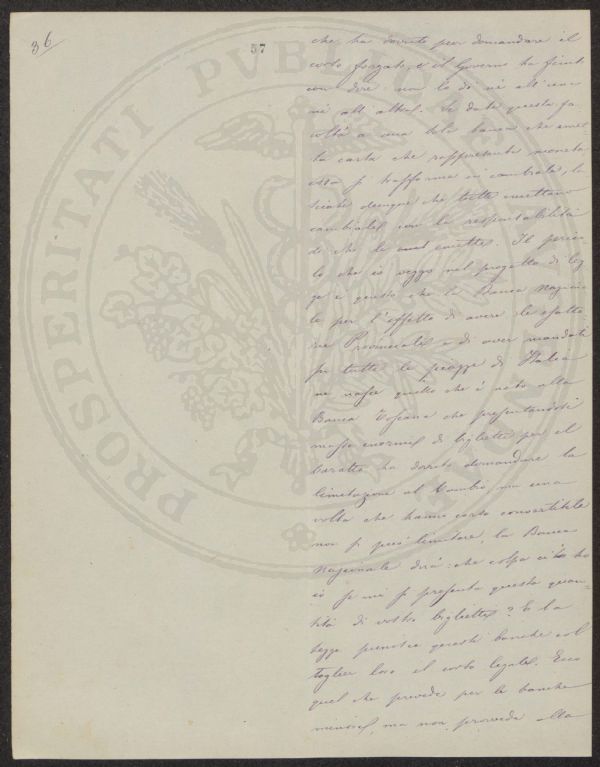 36
57
che ha dovuto poi domandare il
corso forzato, e il Governo ha finito
con dire: non lo do nè all'una
nè all'altra. Se date questa fa
coltà a una sola banca che emet
ta carta che rappresenta moneta
essa si trasforma in cambiale, la
sciate dunque che tutti emettano
cambiali con la responsabilità
di chi le emette. Il perico
lo che io veggo nel progetto di leg
ge è questo che la Banca Naziona
le per l'effetto di avere le esatto
rie Provinciali e di aver mandati
su tutte le piazze di Italia
ne nasce quello che è nato alla
Banca Toscana che presentandosi
masse enormi di biglietti per il
baratto ha dovuto domandare la
limitazione al Cambio, ma una
volta che hanno corso convertibile
non si può limitare, la Banca
Nazionale dirà: che colpa ci ho
io se mi si presenta questa quan
tità di vostri biglietti? E la
legge punisce queste banche col
toglier loro il corso legale. Ecco
quel che prevede per le banche
minori, ma non provvede alla
PROSPERITATI PVBLICAE